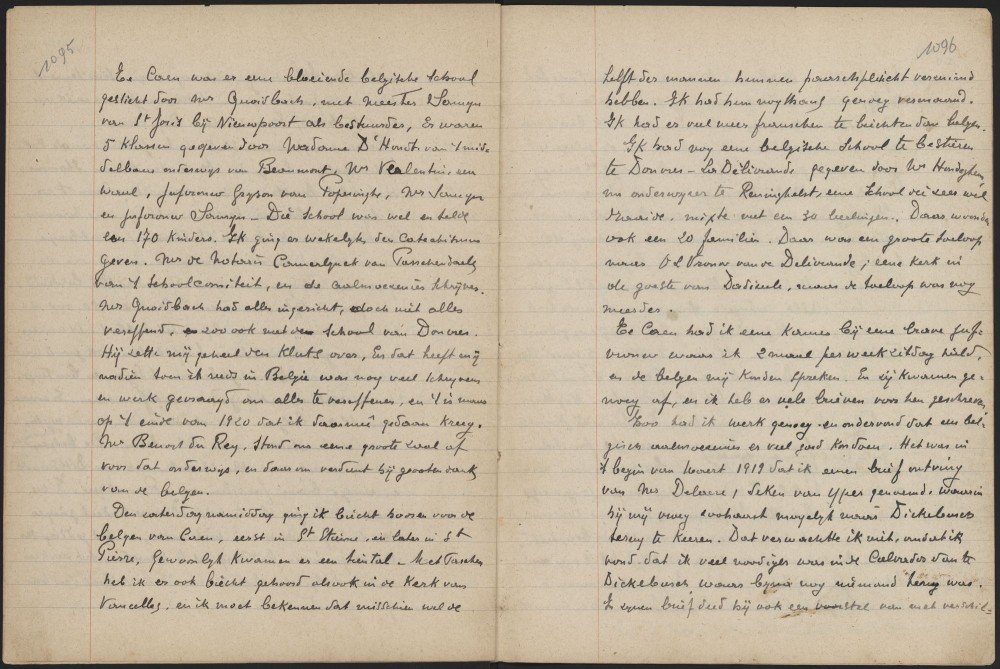 1095
Te Caen was er eene bloeiende belgische School
gesticht door Mr Quoidbach, met meester Samyn
van St Joris bij Nieuwpoort als bestuurder, Er waren
5 klassen gegeven door Madame D'Hondt van 't mid-
delbaar onderwijs van Beaumont, Mr Valentin, een
waal, Juffrouw Gryson van Poperinghe, Mr Samyn
en Juffrouw Samyn - Die School was wel en telde
een 170 kinders. Ik ging er wekelijk den Catechismus
geven. Mr de Notaris Camerlynck van Passchendaele
van 't Schoolcomiteit, en de aalmoezenier Schryver.
Mr Quoidbach had alles ingericht, doch niet alles
vereffend, zoo ook met de school van Douvres.
Hij zette mij geheel den kluts over, En dat heeft mij
nadien toen ik reeds in België was nog veel schryven
en werk gevraagd om alles te vereffenen, en 't is maar
op 't einde van 1920 dat ik daarmeê gedaan kreeg.
Mr Benoit du Rey, stond ons eene groote zaal af
voor dat onderwijs, en daarom verdient hij grooten dank
van de belgen.
Den zaterdagnamiddag ging ik biecht hooren voor de
belgen van Caen, eerst in St Etienne, en later in St
Pierre, Gewoonlyk kwamen er een tiental - Met Paschen
heb ik er ook biecht gehoord alsook in de Kerk van
Vaucelles, en ik moet bekennen dat misschien wel de
1096
helft der mannen hunnen paaschplicht verzuimd
hebben. Ik had hun nogthans genoeg vermaand.
Ik had er veel meer franschen te biechten dan belgen.
Ik had nog eene belgische School te bestieren
te Douvres - La Délivrande gegeven door Mr
onderwyzer te Reninghelst, eene school die zeer wel
draaide, mixte met een 30 leerlingen. Daar woonden
ook een 20 familien. Daar was een groote toeloop
naar O L Vrouw van de Delivrande; eene kerk in
de geeste van Dadizeele, maar de toeloop was nog
meerder.
Te Caen had ik eene kamer bij eene brave Juf-
vrouw waar ik 2 maal per week zitdag hield,
en de belgen mij konden spreken. En zij kwamen ge-
noeg af, en ik heb er vele brieven voor hen geschreven.
Zoo had ik werk genoeg en ondervond dat een bel-
gisch aalmoezenier er veel goed kon doen. Het was in
't begin van Maart 1919 dat ik eenen brief ontving
van Mr Delaere, deken van Yper genoemd, waarin
hij mij vroeg zoohaast mogelyk naar Dickebusch
terug te keeren. Dat verwachtte ik niet, omdat ik
vond dat ik veel noodiger was in de Calvados dan te
Dickebusch, waar bijna nog niemand terug was.
In zynen brief deed hij ook een voorstel van met verschil-